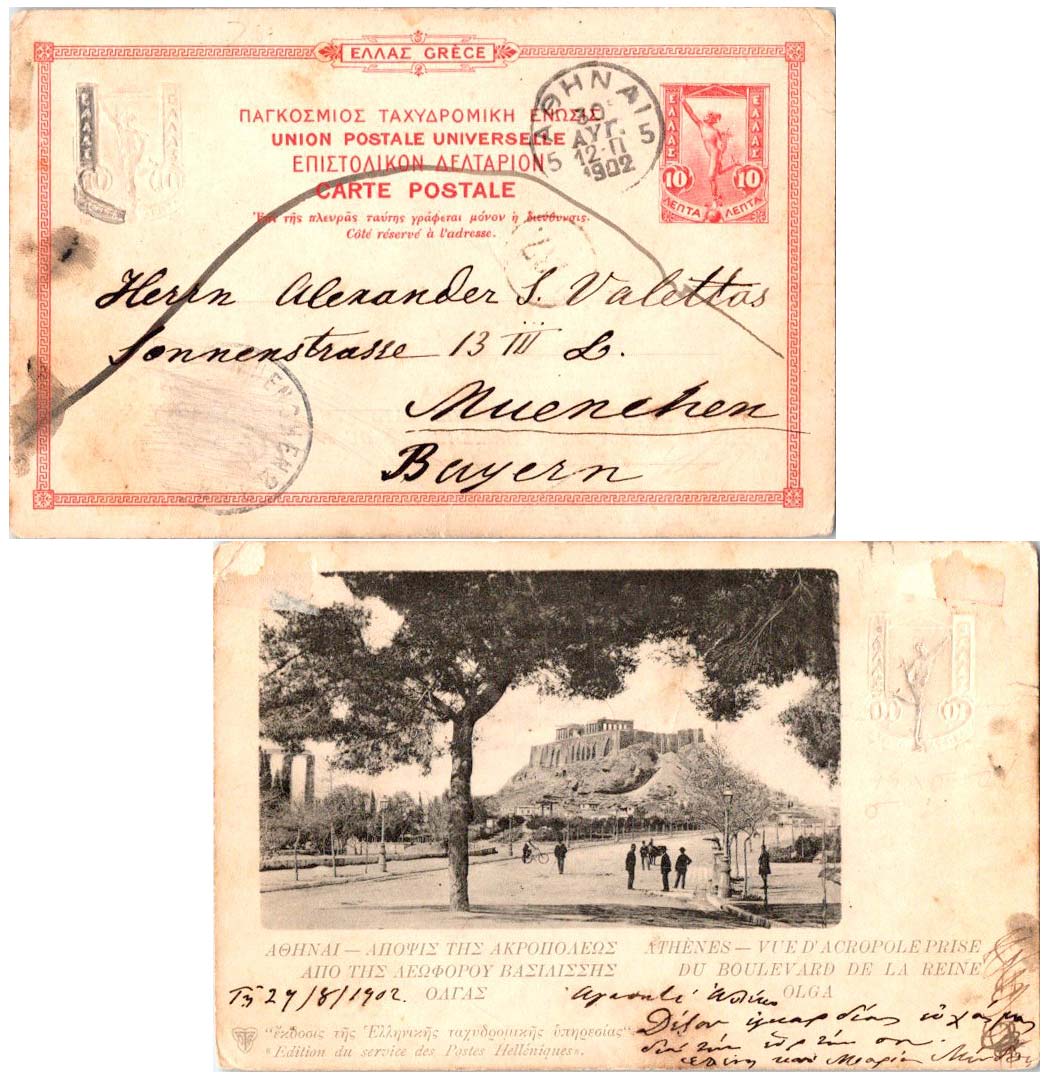 ΕΛΛΑΣ GRÈCE
ΠΑΓΚΟΣΜΙΟΣ ΤΑΧΥΔΡΟΜΙΚΗ ΕΝΩΣΙΣ
UNION POSTALE UNIVERSELLE
ΕΠΙΣΤΟΛΙΚΟΝ ΔΕΛΤΑΡΙΟΝ
CARTE POSTALE
Ἐπὶ τῆς πλευρᾶς ταύτης γράφεται μόνον ἡ διεύθυνσις.
Côté réservé à l'adresse.
ΕΛΛΑΣ
ΑΘΗΝΑΙ
5 5
30
ΑΥΓ.
12-Π
1902
ΕΛΛΑΣ ΕΛΛΑΣ
10 10
ΛΕΠΤΑ ΛΕΠΤΑ
Herrn Alexander S. Valettas
Sonnenstrasse 13 III L.
Muenchen
Bayern
ΕΛΛΑΣ ΕΛΛΑΣ
ΑΘΗΝΑΙ — ΑΠΟΨΙΣ ΤΗΣ ΑΚΡΟΠΟΛΕΩΣ
ΑΠΟ ΤΗΣ ΛΕΩΦΟΡΟΥ ΒΑΣΙΛΙΣΣΗΣ
ΟΛΓΑΣ
ATHÈNES — VUE D'ACROPOLE PRISE
DU BOULEVARD DE LA REINE
OLGA
Τῇ 29/8/1902.
"ἔκδοσις τῆς Ἑλληνικῆς ταχυδρομικῆς ὑπηρεσίας"
"Edition du service des Postes Helléniques".